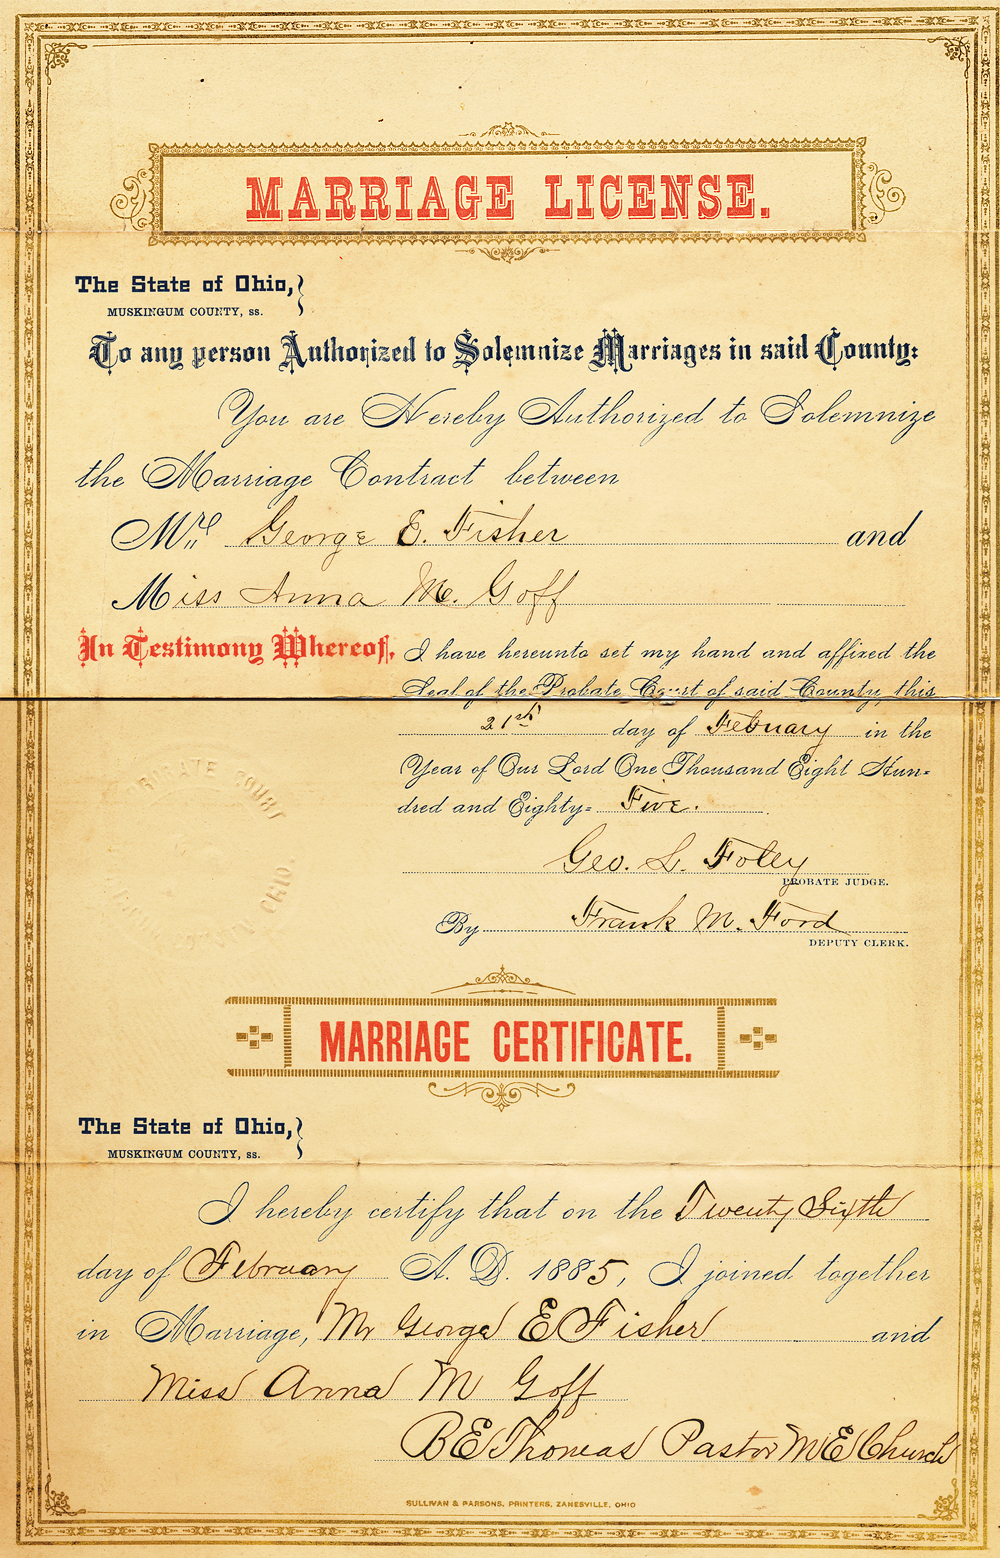 MARRIAGE LICENSE.
The State of Ohio,
MUSKINGUM COUNTY, ss.
To any person Authorized to Solemnize Marriages in said County:
You are Hereby Authorized to Solemnize
the Marriage Contract between
Mr. George E. Fisher and
Miss Anna M. Goff
In Testimony Whereof, I have hereunto set my hand and affixed the
Seal of the Probate Court of said County, this
21st day of Febuary in the
Year of Our Lord One Thousand Eight Hun=
dred and Eighty= Five.
Geo. L. Foley
PROBATE JUDGE.
By Frank M. Ford
DEPUTY CLERK.
PROBATE COURT
OHIO.
MARRIAGE CERTIFICATE.
The State of Ohio,
MUSKINGUM COUNTY, ss.
I hereby certify that on the Twenty Sixth
day of February A. D. 1885, I joined together
in Marriage, Mr George E Fisher and
Miss Anna M Goff
B E Thomas Pastor M E Church
SULLIVAN & PARSONS, PRINTERS, ZANESVILLE, OHIO